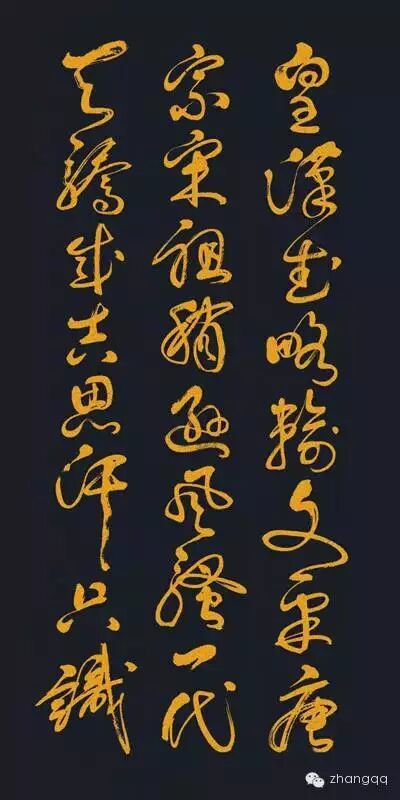 皇漢武略輸文采唐
宗宋祖稍遜風騷一代
天驕成吉思汗只識
zhangqq